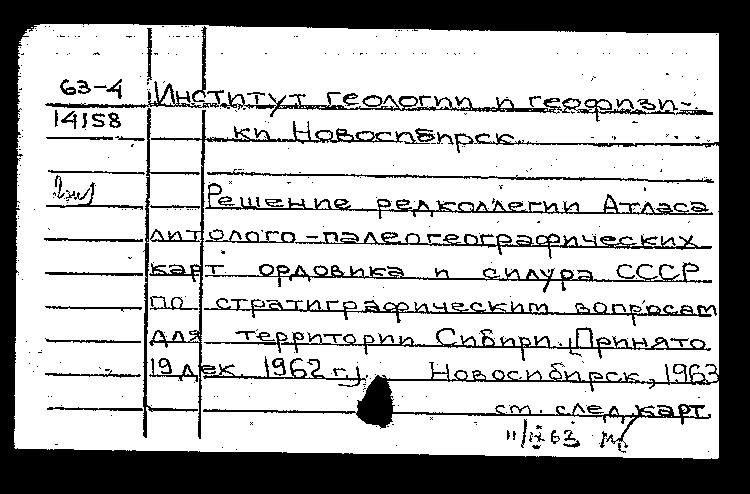 63-4 Институт геологии и геофизи-
14158 ки Новосибирск
Решение редколлегии Атласа
литолого-палеогеографических
карт ордовика и силура СССР
по стратиграфическим вопросам
для территории Сибири. [Принято
19 дек. 1962 г.]. Новосибирск, 1963
см. след. карт.
11/IX 63